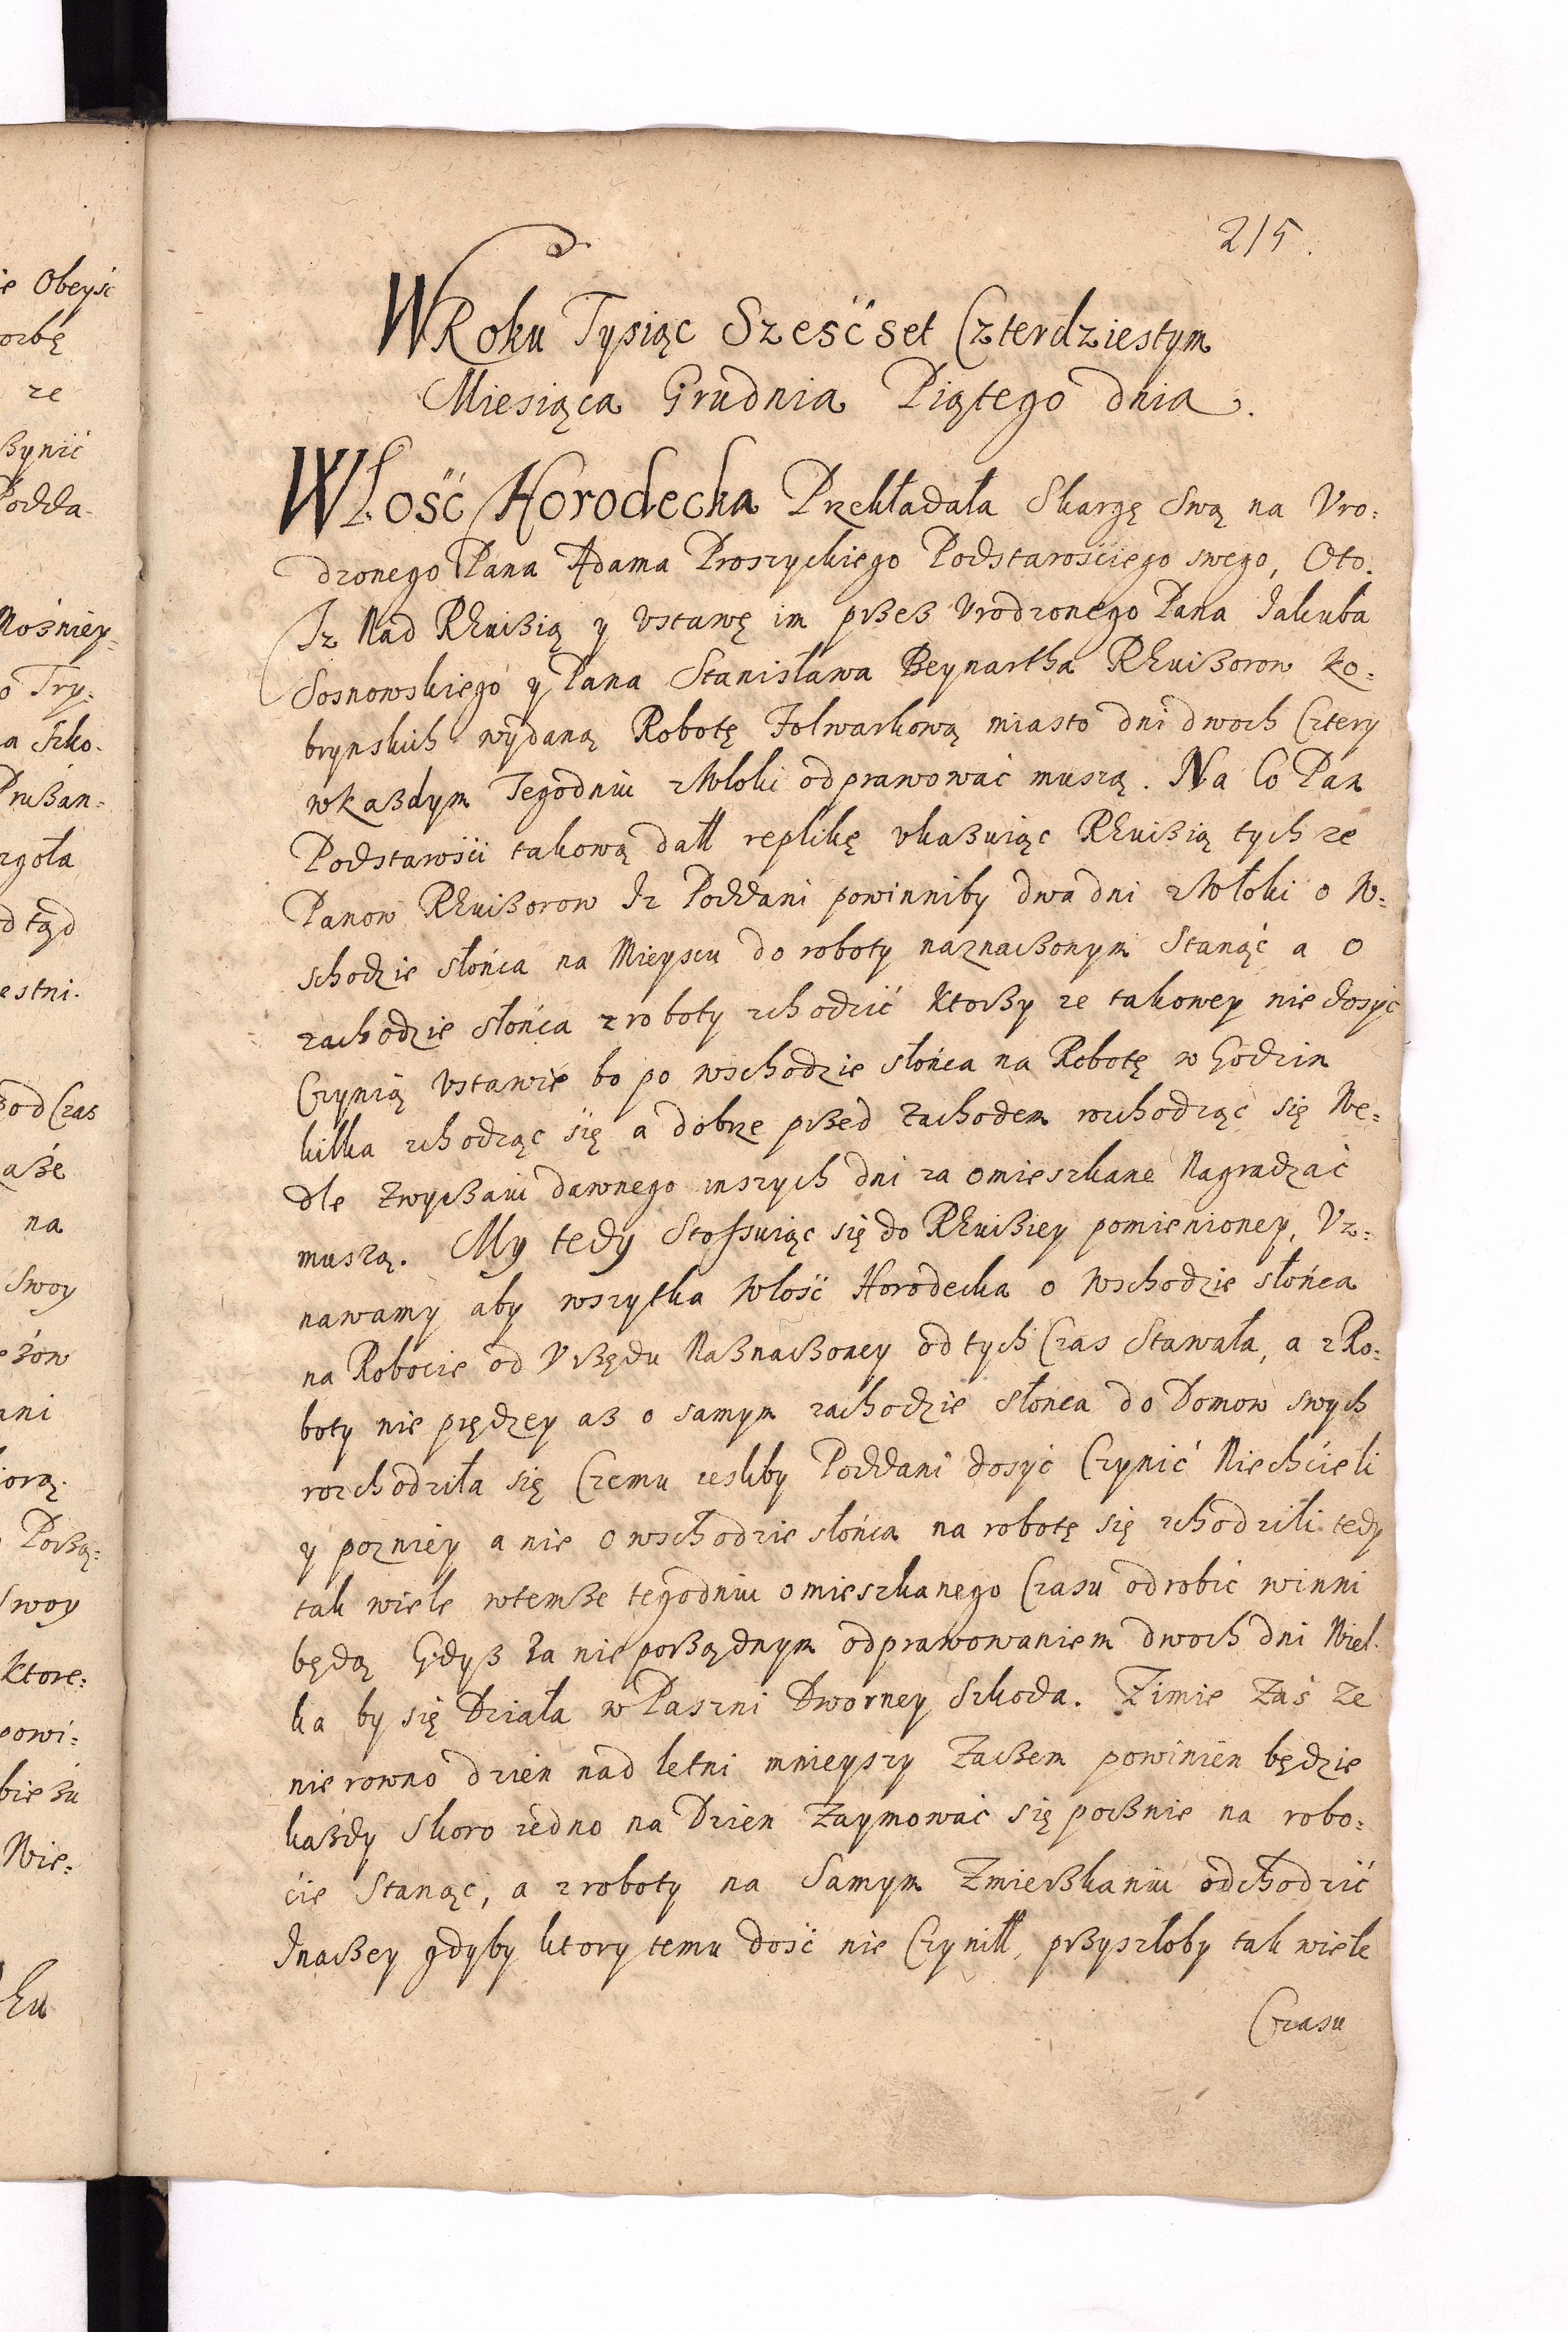 215.
W Roku Tysiąc Sześćset Czterdziestym
Miesiąca Grudnia Piątego dnia.
Włość Horodecka Przekładała Skargę Swą na Vro:
dzonego Pana Adama Proszyckiego Podstarościego swego, Oto.
Iz Nad REuißią y Vstawę im przeß Vrodzonego Pana Jakuba
Sosnowskiego y Pana Stanisława Beynartha REuißorow ko:
brynskich wydaną Robotę Folwarkową miasto dni dwoch Cztery
w kaßdym Tegodniu z Włoki odprawować muszą. Na Co Pan
Podstarości takową dałł replikę vkaßuiąc REuißią tychze
Panow REuißorow Iz Poddani powinniby dwa dni z Włoki o W:
schodzie słońca na Mieyscu do roboty naznaczonym Stanąć a o
zachodzie słońca z roboty zchodzić ktorzy ze takowey nie dosyc
Czynią Vstawie bo po wschodzie słońca na Robotę w Godzin
kilka zchodząc się a dobrze przed zachodem rozchodząc się We:
dle zwyczaiu dawnego inszych dni za omieszkane Nagradzać
muszą. My tedy Stosuiąc się do REuißiey pomienioney, Vz:
nawamy aby wszytka Włość Horodecka o Wschodzie słońca
na Robocie od Vrzędu Naßnaczoney od tych Czas Stawała, a z Ro:
boty nie prędzey aß o samym zachodzie słonca do Domow swych
rozchodziła się Czemu iesliby Poddani dosyć Czynić Niechcieli
y pozniey a nie o wschodzie słońca na robotę się zchodzili tedy
tak wiele wtemße tegodniu omieszkanego Czasu odrobić winni
będą Gdyß Za nieporządnym odprawowaniem dwoch dni Wiel:
ka by się Działa w Paszni Dworney Szkoda. Zimie Zaś Ze
nie rowno dzien nad letni mnieyszy Zaczem powinien będzie
kaßdy Skoro iedno na Dzien Zaymować się pocznie na robo:
cie Stanąć, a z roboty na Samym Zmierzkaniu odchodzić
Inaczey gdyby ktory temu dość nie Czyniłł, przyszłoby tak wiele
Czasu